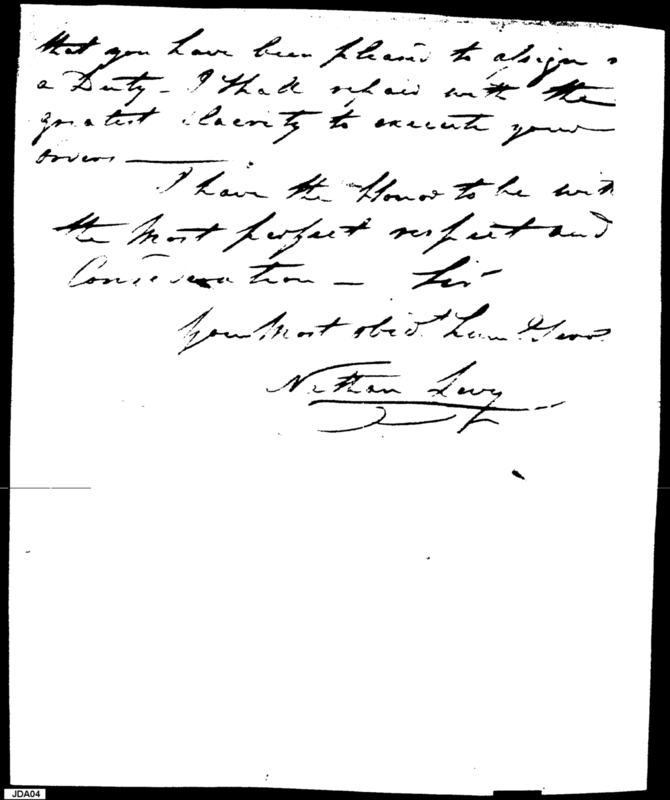 that you have been pleased to assign
a Duty – I shall repair with the
greatest alacrity to execute your
orders ———
I have the Honor to be with
the Most perfect respect and
Consideration — Sir
Your Most obedt. hum. Servt.
Nathan Levy
JDA04